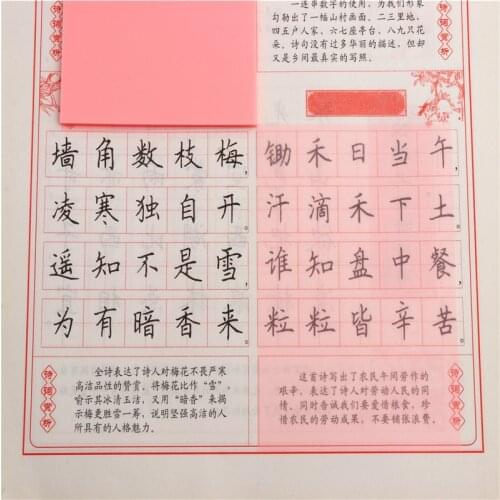 一连串数字的使用，为我们形象
勾勒出了一幅山村画面。二三里地，
四五户人家，六七座亭台，八九只花
朵。诗句没有过多华丽的描述，但却
又是乡间最真实的写照。
诗词赏析
墙角数枝梅，
凌寒独自开。
遥知不是雪，
为有暗香来。
诗词赏析
全诗表达了诗人对梅花不畏严寒
高洁品性的赞赏。将梅花比作“雪”，
喻示其冰清玉洁，又用“暗香”来揭
示梅更胜雪一筹，说明坚强高洁的人
所具有的人格魅力。
锄禾日当午，
汗滴禾下土。
谁知盘中餐，
粒粒皆辛苦。
这首诗写出了农民午间劳作的
艰辛，表达了诗人对劳动人民的同
情。同时告诫我们要爱惜粮食，珍
惜农民的劳动成果，不要铺张浪费。
诗词赏析